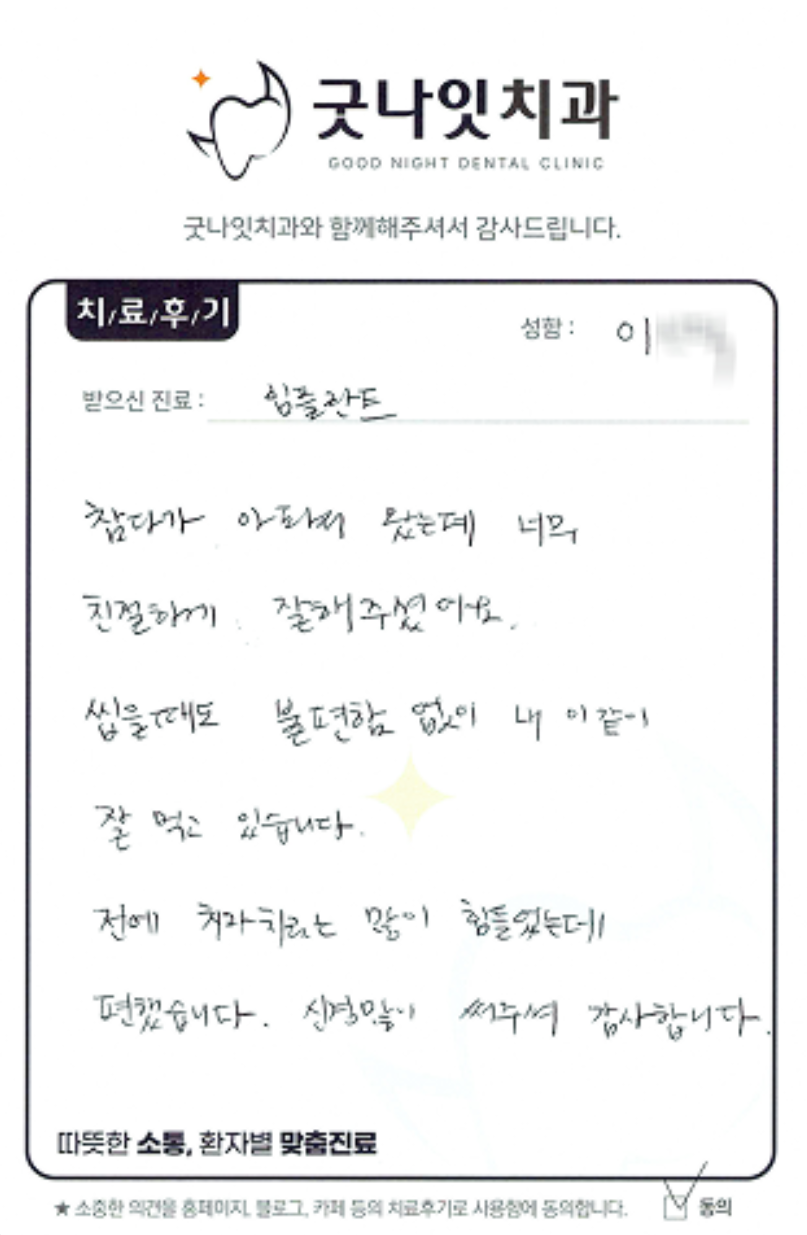 굿나잇치과
GOOD NIGHT DENTAL CLINIC
굿나잇치과와 함께해주셔서 감사드립니다.
치/료/후/기
성함 : 이
받으신 진료 : 임플란트
참다가 아파서 왔는데 너무
친절하게 잘해주셨어요.
씹을때도 불편함 없이 내 이같이
잘 먹고 있습니다.
전에 치과치료는 많이 힘들었는데
편했습니다. 신경많이 써주셔 감사합니다.
따뜻한 소통, 환자별 맞춤진료
★ 소중한 의견을 홈페이지, 블로그, 카페 등의 치료후기로 사용함에 동의합니다. 동의